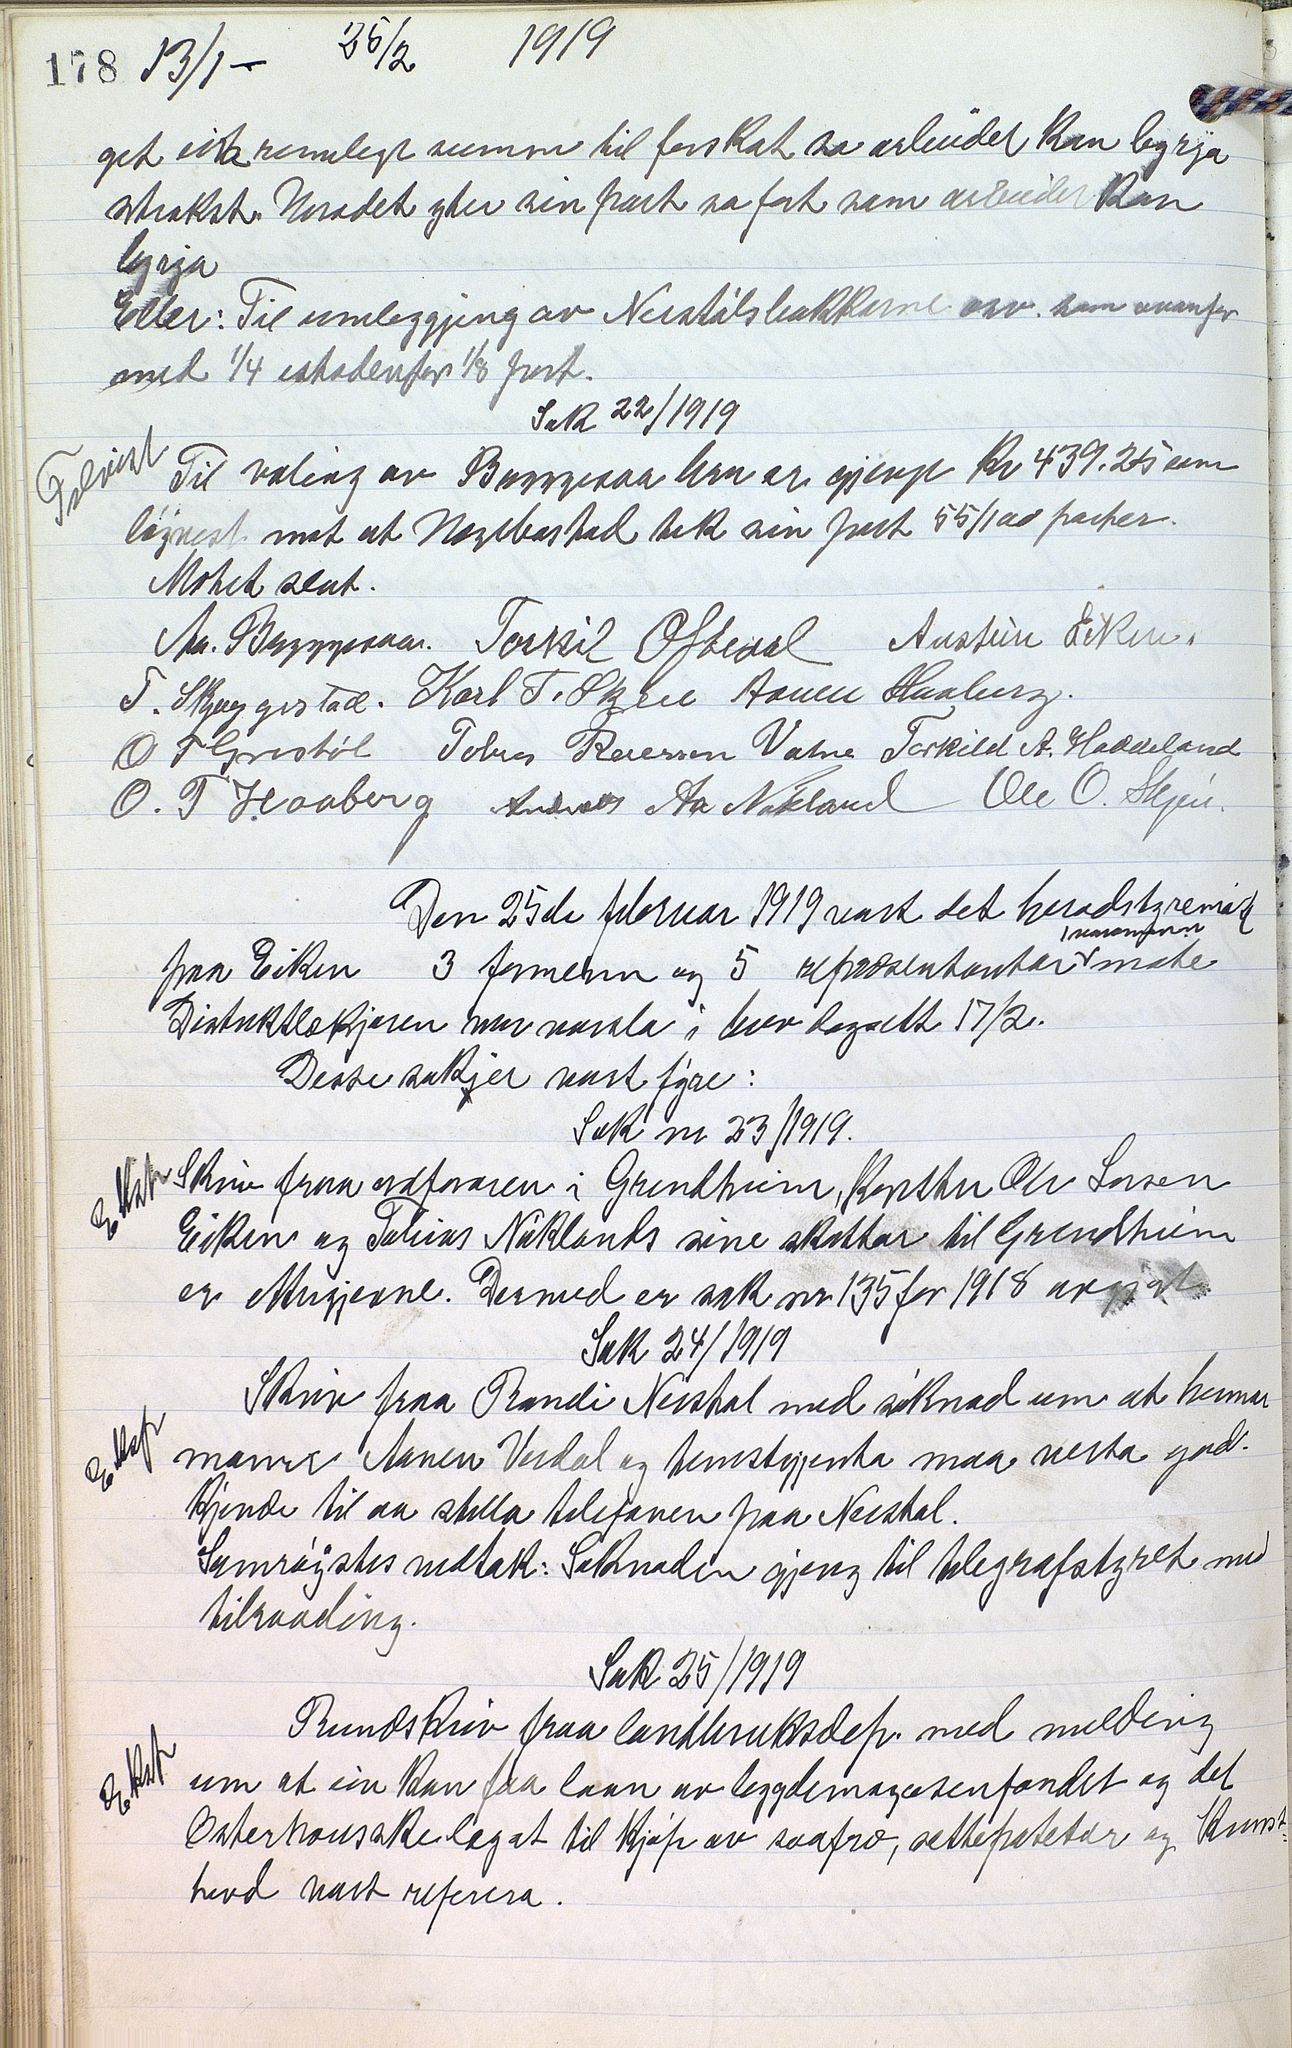 178 13/1 – 25/2 1919
get ei rimelegt summa til forskot so arbeidet kan byrja
strakst. Heradet yter sin part so fort som arbeidet kan
byrja
Eller: Til umleggjing av Neistålsbakkarne osv. som ovanfor
med 1/4 istadenfor 1/8 part.
Sak 22/1919
Til veling av Byggesaa bru er gjenge Kr 439.25 som
løyvest mot at Hægebostad tek sin part 55/100 parter.
Møtet slut.
Aa. Byggesaa. Torkil Oftedal Austein Eiken.
T. Skjeggestad. Karl T. Skjeie Aanen Haaberg.
O T Grostøl Tobias Reiersen Vatne Torkild A. Haddeland
O. T Haaberg Andreas Aa Nøkland Ole O. Skjei.
Den 25de februar 1919 vart det heradstyremøte
fraa Eiken 3 formenn og 5 representantar 1 varamann møtte
Distriktlækjaren var varsla i brev dagsett 17/2.
Desse sakjer vart fyre:
Sak nr 23/1919.
Ekstr
Skriv fraa ordføraren i Grindheim, Ole Larsen
Eiken og Tobias Nøklands sine skattar til Grindheim
er ettergjevne. Dermed er sak nr 135 for 1918 avgjort
Sak 24/1919
Ekstr
Skriv fraa Randi Neistal med søknad um at hennar
mann Aanen Verdal og tenestgjenta maa verta god-
kjende til aa stella telefonen paa Neistal.
Samrøystes vedtak: Søknaden gjeng til telegrafstyret med
tilraading.
Sak 25/1919
Ekstr
Rundskriv fraa landbruksdep. med melding
um at ein kan faa laan av bygdemagasenfondet og det
Osterhousske legat til kjøp av saafrø, settepoteter og kunst-
hevd vart referera.